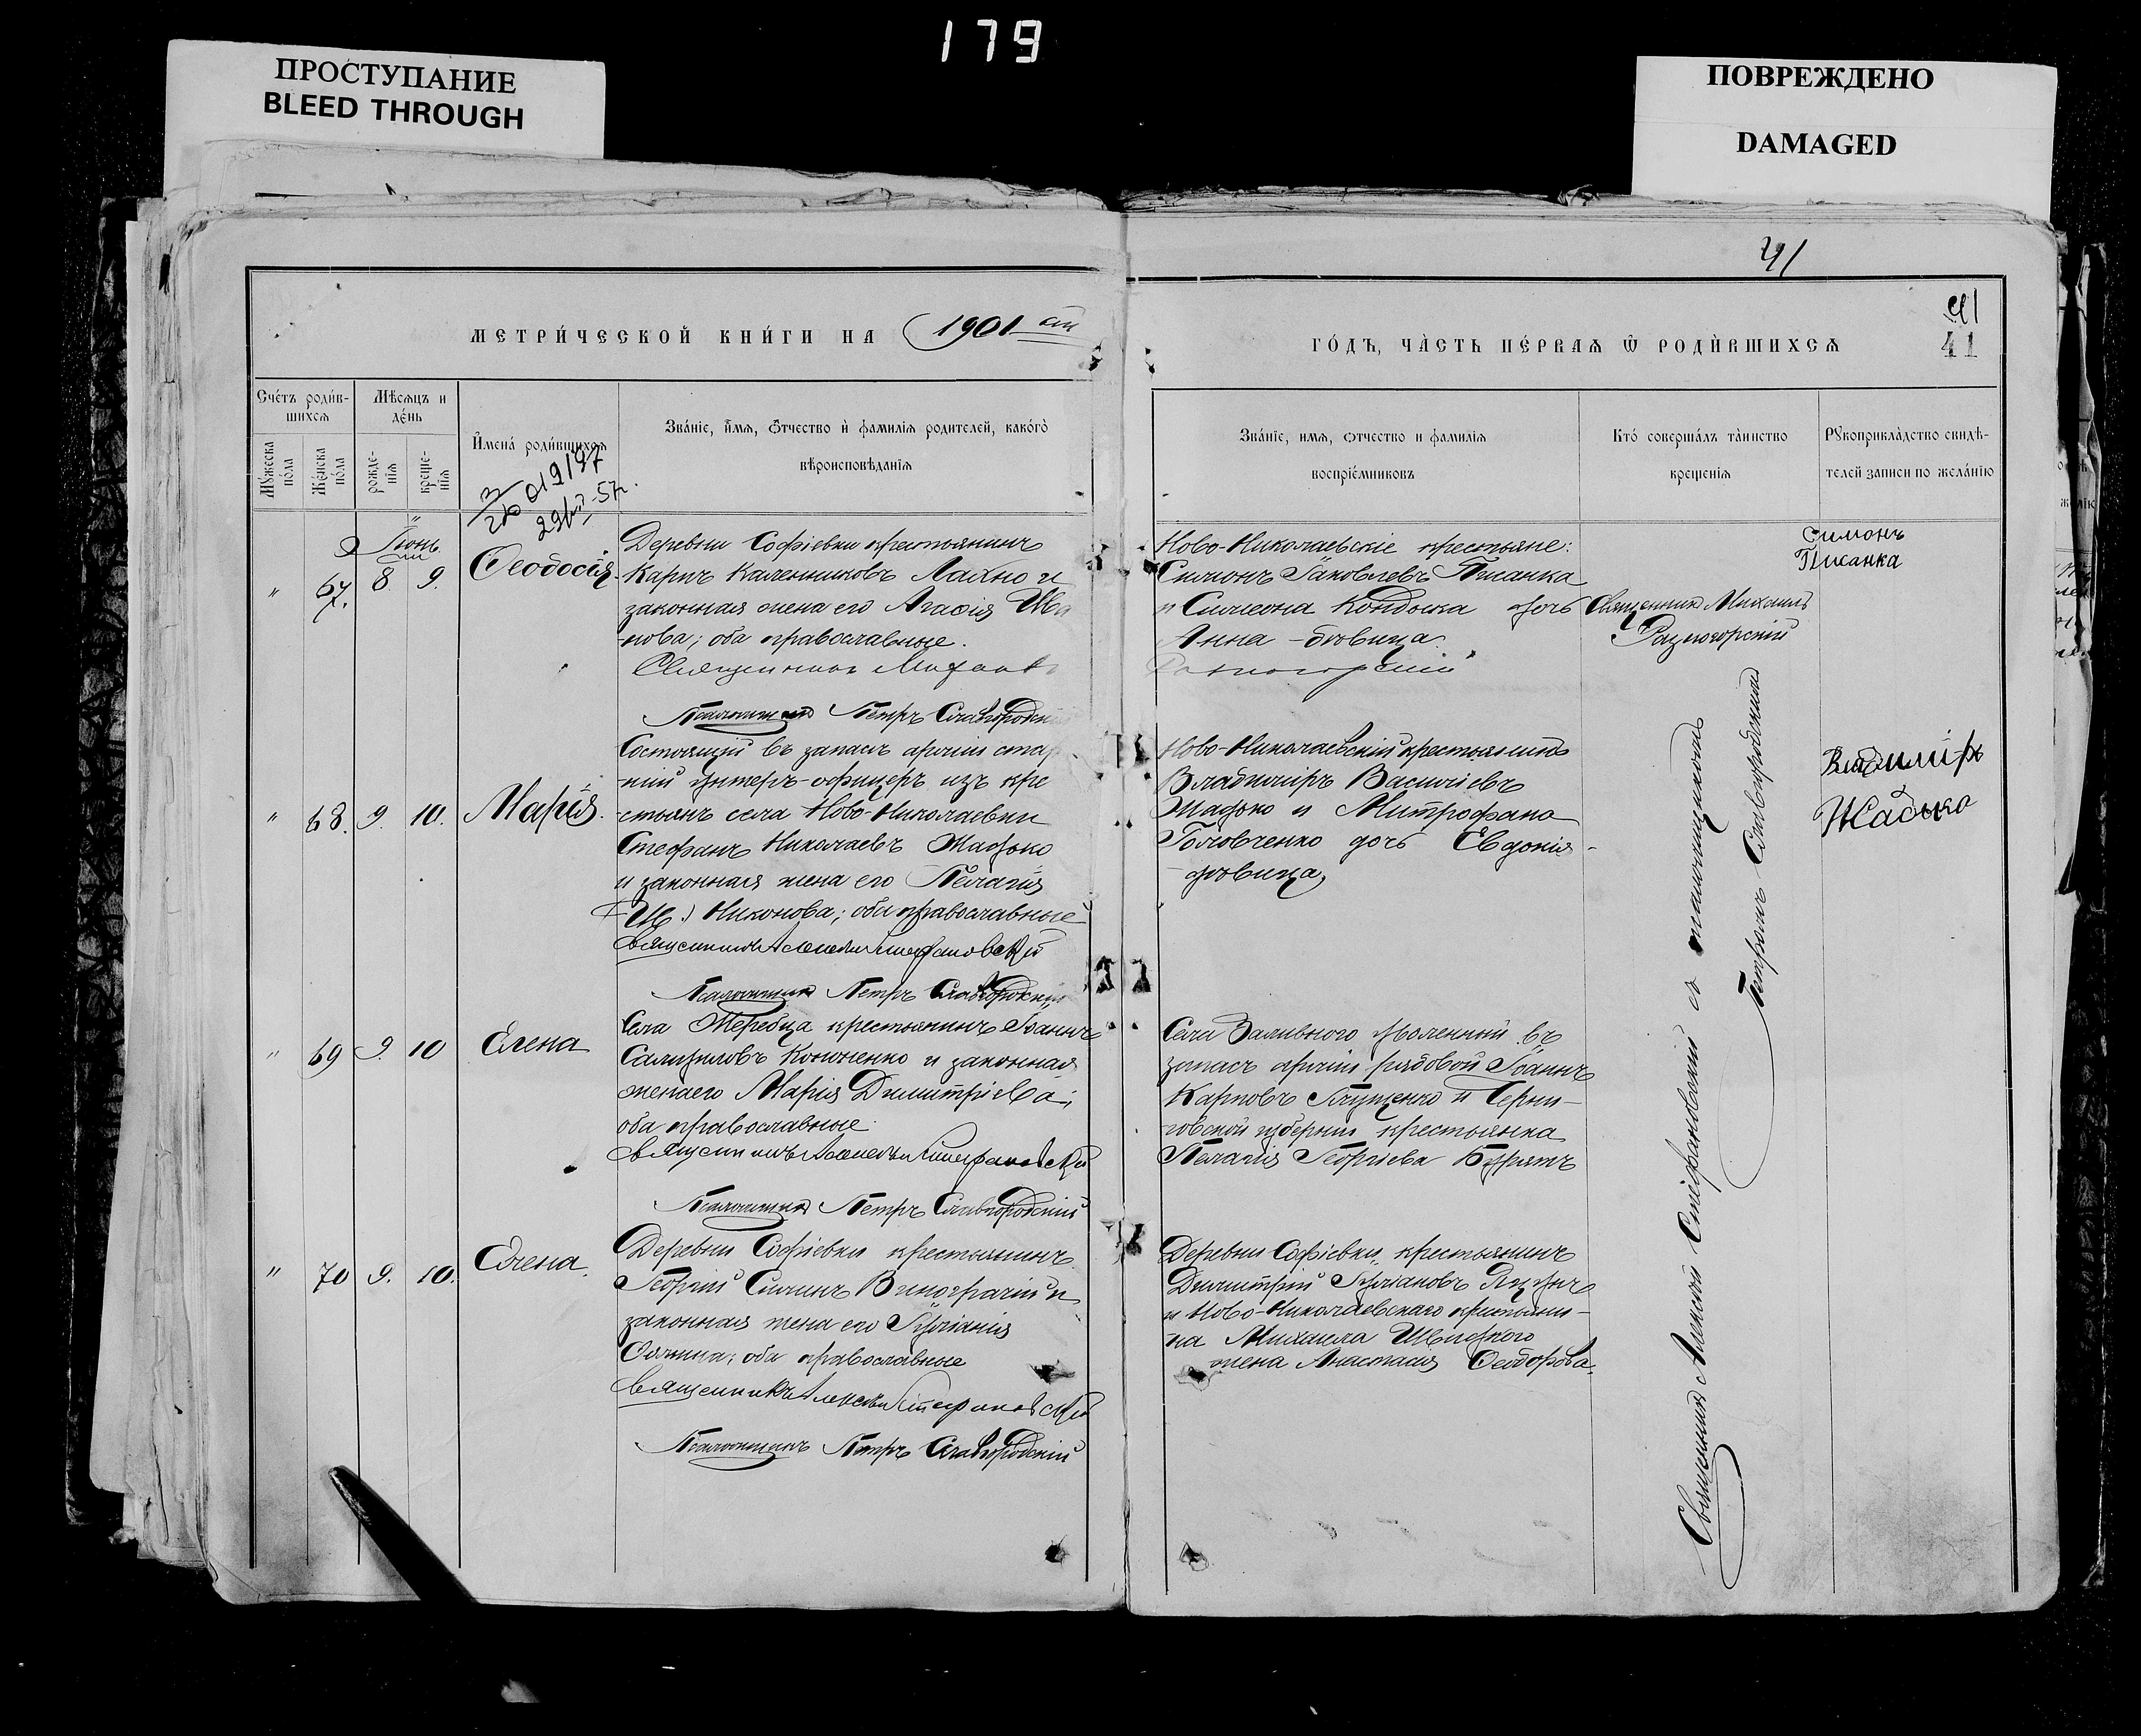 179
ПРОСТУПАНИЕ
BLEED THROUGH
ПОВРЕЖДЕНО
DAMAGED
41
41
41
МЕТРИ́ЧЕСКОЙ КНИ́ГИ НА 1901 ый
ГО́ДЪ, ЧА́СТЬ ПЕ́РВАѦ Ѿ РОДИ́ВШИХСѦ
Сче́тъ роди́в-
шихсѧ
Мѣсѧцъ и
де́нь
Мꙋжеска по́ла
Же́нска по́ла
рожде-
нїѧ
креще-
нїѧ
И҆мена́ роди́вшихсѧ
Зва́нїе, и҆́мѧ, ѻ҆́тчество и҆ фамилїѧ родителей, како́гѡ
вѣроисповѣданїѧ
Зва́нїе, имѧ, ѻтчество и фами́лїѧ
воспрїе́мниковъ
Кто́ соверша́лъ та́инство
крещенїѧ
Рꙋкоприкла́дство свидѣ-
телей записи по жела́нїю
019197
57г.
Іюнь
" 67. 8 9. Ѳеодосія
Деревни Софіевки крестьянинъ
Карпъ Калинниковъ Лахно и
законная жена его Агаѳія Ива
нова; оба православные.
Священникъ Михаилъ
Разногорскій
Псаломщикъ Петръ Славгородскій
Ново-Николаевскіе крестьяне:
Симонъ Іаковлевъ Писанка
и Симеона Кондыка дочь
Анна - дѣвица.
Священникъ Михаилъ
Разногорскій
Симонъ
Писанка
" 68. 9. 10. Марія.
Состоящій въ запасѣ арміи стар
шій унтеръ-офицеръ изъ кре
стьянъ села Ново-Николаевки
Стефанъ Николаевъ Жадько
и законная жена его Пелагія
Никонова; оба православные
Священникъ Алексѣй Стефановскій
Псаломщикъ Петръ Славгородскій
Ново-Николаевскій крестьянинъ
Владиміръ Василіевъ
Жадько и Митрофана
Головченко дочь Евдокія -
дѣвица,
Владиміръ
Жадько
" 69 9. 10 Елена
Села Жеребца крестьянинъ Іоаннъ
Кононенко и законная
жена его Марія Димитріева;
оба православные.
Священникъ Алексѣй Стефановскій
Псаломщикъ Петръ Славгородскій
Села Заливного уволенный въ
запасъ арміи рядовой Іоаннъ
Карповъ Глущенко и Черни-
говской губерніи крестьянка
Пелагія Георгіева Бурятъ
" 70 9. 10. Елена.
Деревни Софіевки крестьянинъ
Георгій Винограчій и
законная жена его Іуліанія
Ѳомина; оба православные
Священникъ Алексѣй Стефановскій
Псаломщикъ Петръ Славгородскій
Деревни Софіевки, крестьянинъ
Димитрій Іуліановъ
и Ново-Николаевскаго крестьяни-
на Михаила Швецкого
жена Анастасія Ѳеодорова.
Священникъ Алексѣй Стефановскій съ псаломщикомъ
Петромъ Славгородскимъ